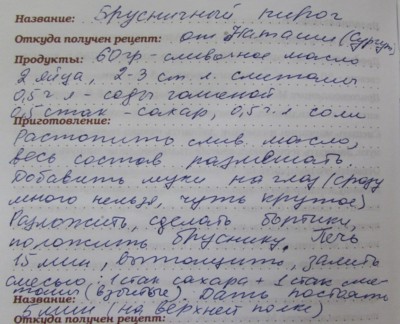 Название: Брусничный пирог
Откуда получен рецепт: от Наташи (Сургут)
Продукты: 60 гр - сливочное масло
2 яйца, 2-3 ст л. сметаны
0,5 ч л - соды гашеной
0,5 стак - сахар, 0,5 ч. л соли
Приготовление:
Растопить слив. масло,
весь состав размешать.
Добавить муки на глаз (сразу
много нельзя, чуть крутое)
Разложить, сделать бортики,
положить бруснику. Печь
15 мин, вытащить, залить
смесью. 1 стак сахара + 1 стак сме
таны (взбитые). Дать постоять
Название: 5 мин (на верхней полке)
Откуда получен рецепт: